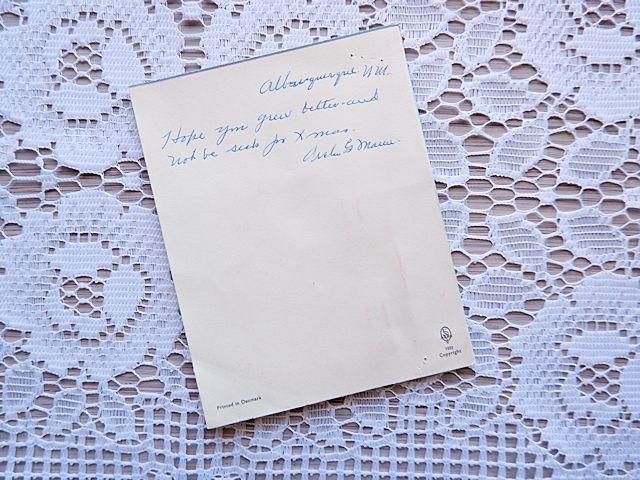 Albuquerque N.M.
Hope you grew better and
not be sick for Xmas.
Printed in Denmark
Copyright